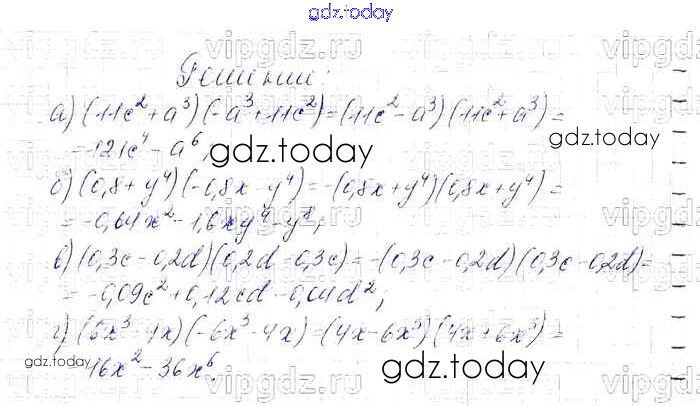 gdz.today
vipgdz.ru vipgdz.ru
gdz.today
Решение:
а) (11c² + a³)(-a³ + 11c²) = (11c² - a³)(11c² + a³) =
= 121c⁴ - a⁶;
gdz.today
vipgdz.ru
б) (0,8 + y⁴)(-0,8x - y⁴) = -(0,8x + y⁴)(0,8x + y⁴) =
= -0,64x² - 1,6xy⁴ - y⁸;
vipgdz.ru
в) (0,3c - 0,2d)(0,2d - 0,3c) = -(0,3c - 0,2d)(0,3c - 0,2d) =
= -0,09c² + 0,12cd - 0,04d²;
vipgdz.ru
г) (6x³ - 4x)(-6x³ - 4x) = (4x - 6x³)(4x + 6x³) =
16x² - 36x⁶
gdz.today
gdz.today
vipgdz.ru vipgdz.ru